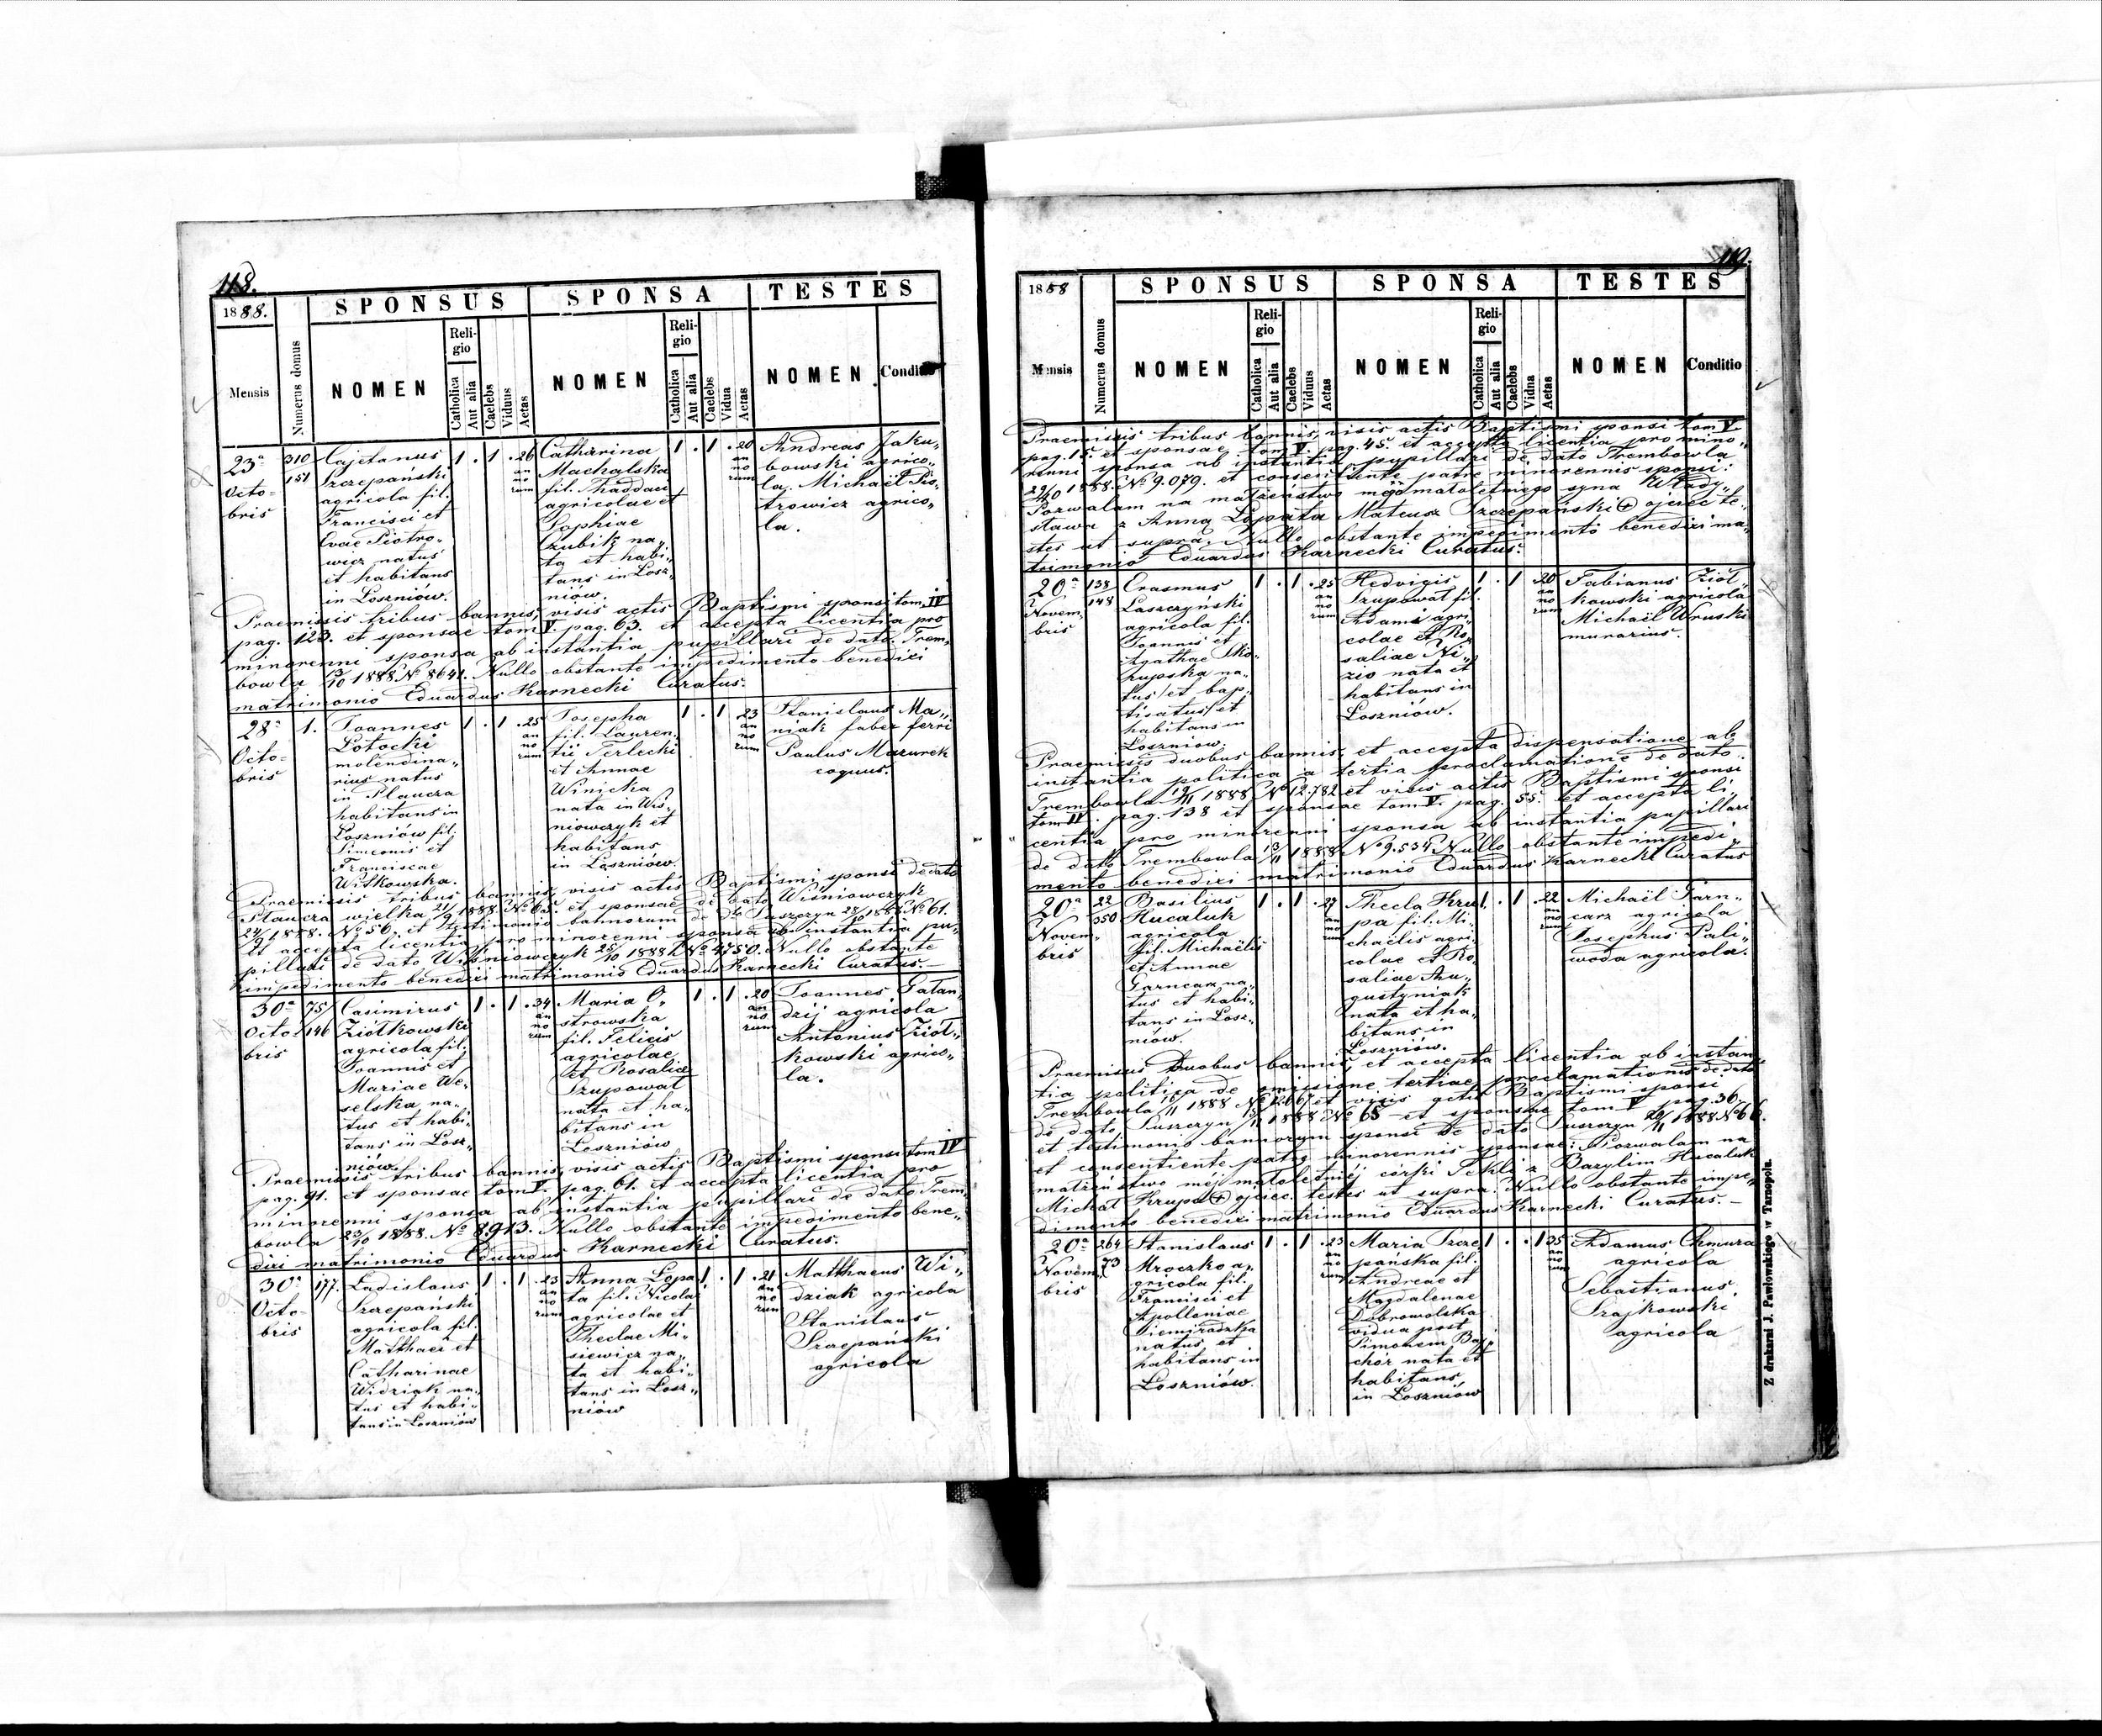 118.
1888.
SPONSUS
SPONSA
TESTES
Mensis
Numerus domus
NOMEN
Religio
Catholica
Aut alia
Caelebs
Viduus
Aetas
NOMEN
Religio
Catholica
Aut alia
Caelebs
Vidua
Aetas
NOMEN
Conditio
23a
Octo=
bris
310
151
Cajetanus
Szczepański
agricola fil.
Francisci et
Evae Piotro=
wicz natus
et habitans
in Łoszniów.
1 . 1 . 26
an
no
rum
Catharina
Machalska
fil. Thaddaei
agricolae et
Sophiae
Czubik na„
ta et habi„
tans in Łosz„
niów.
1 . 1 . 20
an
no
rum
Andreas Jaku„
bowski agrico„
la. Michaël Pio„
trowicz agrico„
la.
Praemissis tribus bannis, visis actis Baptismi sponsi tom. IV
pag. 123. et sponsae tom V. pag. 63. et accepta licentia pro
minorenni sponsa ab instantia pupillari de dato Trem„
bowla 13/10 1888 No 8641. Nullo obstante impedimento benedixi
matrimonio Eduardus Karnecki Curatus.
28a
Octo=
bris
1.
Joannes
Potocki
molendina„
rius natus
in Płaucza
habitans in
Łoszniów fil.
Simeonis et
Franciscae
Witkowska.
1 . 1 . 25
an
no
rum
Josepha
fil. Lauren„
tii Terlecki
et Annae
Winicka
nata in Wiś„
niowczyk et
habitans
in Łoszniów.
1 . 1 . 23
an
no
rum
Stanislaus Ma„
niak faber ferri
Paulus Mazurek
coquus.
Praemissis tribus bannis, visis actis Baptismi sponsi de dato
Płaucza wielka 21/9 1888. No 65. et sponsae de dato Wiśniowczyk
24/9 1888. No 56. et testimonio bannorum de dto Suszczyn 28/10 1888 No 61.
et accepta licentia pro minorenni sponsa ab instantia pu„
pillari de dato Wiśniowczyk 25/10 1888 No 4750. Nullo obstante
impedimento benedixi matrimonio Eduardus Karnecki Curatus.
30a
Octo=
bris
75
146
Casimirus
Ziółkowski
agricola fil.
Joannis et
Mariae We„
selska na„
tus et habi„
tans in Łosz„
niów.
1 . 1 . 34
an
no
rum
Maria O„
strowska
fil. Felicis
agricolae
et Rosaliae
Szupowat
nata et ha„
bitans in
Łoszniów
1 . 1 . 20
an
no
rum
Joannes Gałan„
dzij agricola
Antonius Ziół„
kowski agrico„
la.
Praemissis tribus bannis, visis actis Baptismi sponsi tom IV
pag. 91. et sponsae tom V. pag. 61. et accepta licentia pro
minorenni sponsa ab instantia pupillari de dato Trem„
bowla 23/10 1888. No 8913. Nullo obstante impedimento bene„
dixi matrimonio Eduardus Karnecki Curatus.
30a
Octo=
bris
177.
Ladislaus
Szczepański
agricola fil.
Matthaei et
Catharinae
Widziak na„
tus et habi„
tans in Łoszniów
1 . 1 . 23
an
no
rum
Anna Łopa
ta fil. Nicolai
agricolae et
Theclae Mi„
siewicz na„
ta et habi„
tans in Łosz„
niów
1 . 1 . 21
an
no
rum
Matthaeus Wi„
dziak agricola
Stanislaus
Szczepański
agricola
119.
1888
SPONSUS
SPONSA
TESTES
Mensis
Numerus domus
NOMEN
Religio
Catholica
Aut alia
Caelebs
Viduus
Aetas
NOMEN
Religio
Catholica
Aut alia
Caelebs
Vidua
Aetas
NOMEN
Conditio
Praemissis tribus bannis, visis actis Baptismi sponsi tom V.
pag. 15 et sponsae tom V. pag. 45. et accepta licentia pro mino„
renni sponsa ab instantia pupillari de dato Trembowla
29/10 1888. No 9.079. et consentiente patre minorennis sponsi:
Pozwalam na małżeństwo mego małoletniego syna Włady„
sława z Anną Łopata Mateusz Szczepański (+) ojciec te„
stes ut supra. Nullo obstante impedimento benedixi ma„
trimonio Eduardus Karnecki Curatus.
20a
Novem„
bris
138
148
Erasmus
Laszczyński
agricola fil.
Joannis et
Agathae Sko„
rupska na„
tus et bap„
tisatus et
habitans in
Łoszniów.
1 . 1 . 25
an
no
rum
Hedvigis
Szupowat fil.
Adami agri„
colae et Ro„
saliae Ni„
zio nata et
habitans in
Łoszniów.
1 . 1 . 20
an
no
rum
Fabianus Ziół„
kowski agricola
Michaël Wruski
murarius.
Praemissis duobus bannis, et accepta dispensatione ab
instantia politica a tertia proclamatione de dato
Trembowla 19/11 1888 No 12.782 et visis actis Baptismi sponsi
tom IV. pag. 138 et sponsae tom V. pag. 55. et accepta li„
centia pro minorenni sponsa ab instantia pupillari
de dato Trembowla 13/11 1888 No 9.534 Nullo obstante impedi„
mento benedixi matrimonio Eduardus Karnecki Curatus
20a
Novem„
bris
22
350
Basilius
Hucaluk
agricola
fil. Michaëlis
et Annae
Garncarz na„
tus et habi„
tans in Łosz„
niów.
1 . 1 . 27
an
no
rum
Thecla Kru
pa fil. Mi„
chaëlis agri„
colae et Ro„
saliae Au„
gustyniak
nata et ha„
bitans in
Łoszniów.
1 . 1 22
an
no
rum
Michaël Garn„
carz agricola
Josephus Pali„
woda agricola.
Praemissis Duobus bannis, et accepta licentia ab instan„
tia politica de omissione tertiae proclamationis de dato
Trembowla 16/11 1888 No 12667 et visis actis Baptismi sponsi
de dato Suszczyn 15/11 1888 No 65 et sponsae tom V pag. 36.
et testimonio bannorum sponsi de dato Suszczyn 20/11 1888. No 66.
et consentiente patre minorennis sponsae: Pozwalam na
małżeństwo mej małoletniej córki Tekli z Bazylim Hucaluk
Michał Krupa (+) ojciec. testes ut supra. Nullo obstante impe„
dimento benedixi matrimonio Eduardus Karnecki Curatus. —
20a
Novem„
bris
264
73
Stanislaus
Mroczko a„
gricola fil.
Francisci et
Apolloniae
Niemiradzka
natus et
habitans in
Łoszniów.
1 . 1 . 23
an
no
rum
Maria Szcze„
pańska fil.
Andreae et
Magdalenae
Dobrowolska
vidua post
Simonem Baj„
chór nata et
habitans
in Łoszniów
1 . . 1 35
an
no
rum
Adamus Chmura
agricola
Sebastianus
Szajkowski
agricola
Z drukarni J. Pawłowskiego w Tarnopolu.